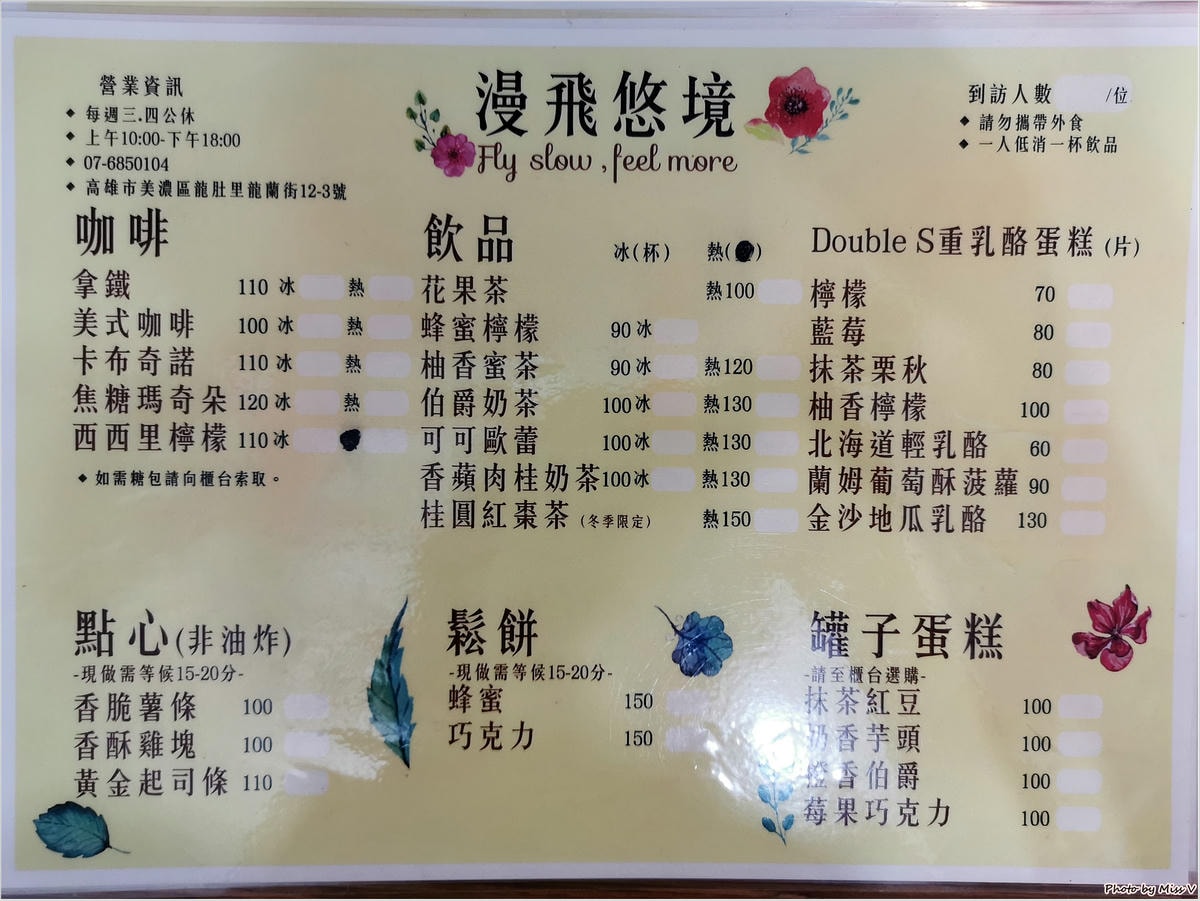 營業資訊
◆ 每週三.四公休
◆ 上午10:00-下午18:00
◆ 07-6850104
◆ 高雄市美濃區龍肚里龍蘭街12-3號
漫飛悠境
Fly slow ,feel more
到訪人數 /位
◆ 請勿攜帶外食
◆ 一人低消一杯飲品
咖啡
拿鐵 110 冰 熱
美式咖啡 100 冰 熱
卡布奇諾 110 冰 熱
焦糖瑪奇朵 120 冰 熱
西西里檸檬 110 冰
◆ 如需糖包請向櫃台索取。
飲品 冰(杯) 熱( )
花果茶 熱100
蜂蜜檸檬 90 冰
柚香蜜茶 90 冰 熱120
伯爵奶茶 100 冰 熱130
可可歐蕾 100 冰 熱130
香蘋肉桂奶茶 100 冰 熱130
桂圓紅棗茶 (冬季限定) 熱150
Double S重乳酪蛋糕 (片)
檸檬 70
藍莓 80
抹茶栗秋 80
柚香檸檬 100
北海道輕乳酪 60
蘭姆葡萄酥菠蘿 90
金沙地瓜乳酪 130
點心(非油炸)
-現做需等候15-20分-
香脆薯條 100
香酥雞塊 100
黃金起司條 110
鬆餅
-現做需等候15-20分-
蜂蜜 150
巧克力 150
罐子蛋糕
-請至櫃台選購-
抹茶紅豆 100
奶香芋頭 100
橙香伯爵 100
莓果巧克力 100
Photo by Miss V